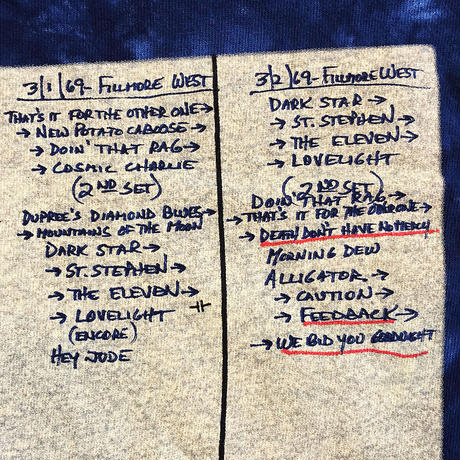 3/1/69 - FILLMORE WEST
THAT'S IT FOR THE OTHER ONE→
→ NEW POTATO CABOOSE→
→ DOIN' THAT RAG→
→ COSMIC CHARLIE
(2ND SET)
DUPREE'S DIAMOND BLUES→
→ MOUNTAINS OF THE MOON
DARK STAR→
→ ST. STEPHEN→
→ THE ELEVEN→
→ LOVELIGHT
(ENCORE)
HEY JUDE
3/2/69 - FILLMORE WEST
DARK STAR→
→ ST. STEPHEN→
→ THE ELEVEN→
→ LOVELIGHT
(2ND SET)
DOIN' THAT RAG→
→ THAT'S IT FOR THE OTHER ONE→
→ DEATH DON'T HAVE NO MERCY
MORNING DEW
ALLIGATOR→
→ CAUTION→
→ FEEDBACK→
→ WE BID YOU GOODNIGHT